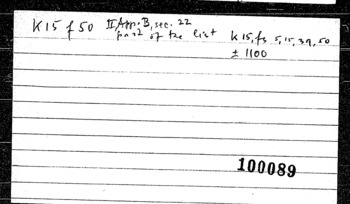 K15 f50 II App. B, sec. 22 K15, fs 5, 15, 39, 50
part 2 of the list ± 1100
100089